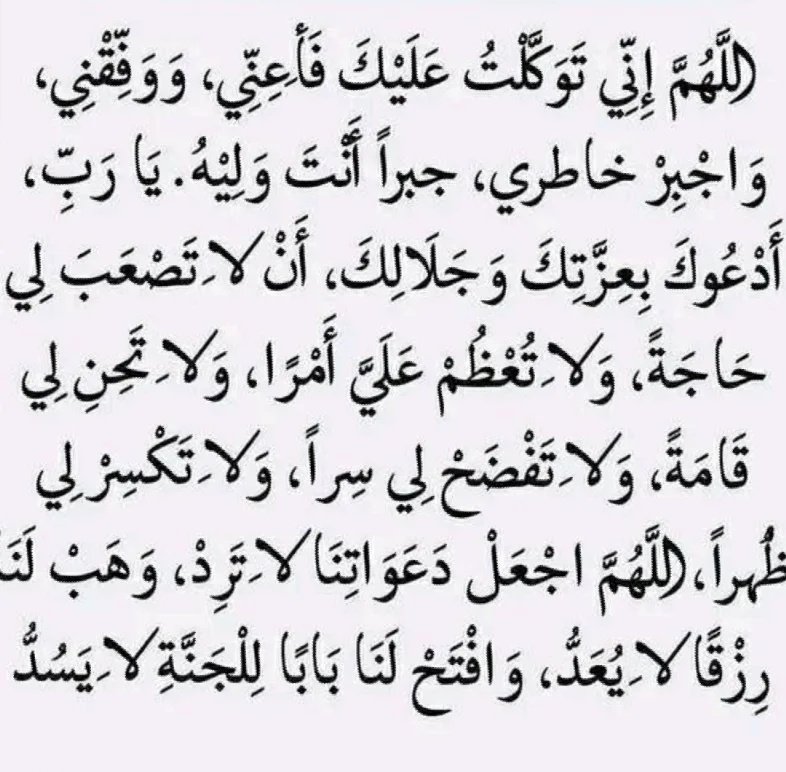 اللَّهُمَّ إِنِّي تَوَكَّلْتُ عَلَيْكَ فَأَعِنِّي، وَوَفِّقْنِي،
وَاجْبِرْ خاطري، جبراً أَنْتَ وَلِيْهُ. يَا رَبِّ،
أَدْعُوكَ بِعِزَّتِكَ وَجَلَالِكَ، أَنْ لاِ تَصْعَبَ لِي
حَاجَةً، وَلاِ تُعْظُمْ عَلَيَّ أَمْرًا، وَلاِ تَحِنِ لِي
قَامَةً، وَلاِ تَفْضَحْ لِي سِراً، وَلاِ تَكْسِرْ لِي
ظُهراً، اللَّهُمَّ اجْعَلْ دَعَوَاتِنَا لاِ تَرِدْ، وَهَبْ لَنَا
رِزْقًا لاِ يُعَدُّ، وَافْتَحْ لَنَا بَابًا لِلْجَنَّةِ لاِ يَسُدُّ